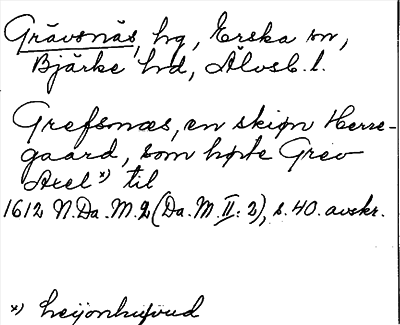 Grävsnäs, hg, Erska sn,
Bjärke hd, Älvsb. l.
Grefsnæs, en skiøn Herre-
gaard, som hørte Grev
Axel *) til
1612 N.Da.M.2 (Da.M.II: 2), s.40. avskr.
*) leijonhufvud